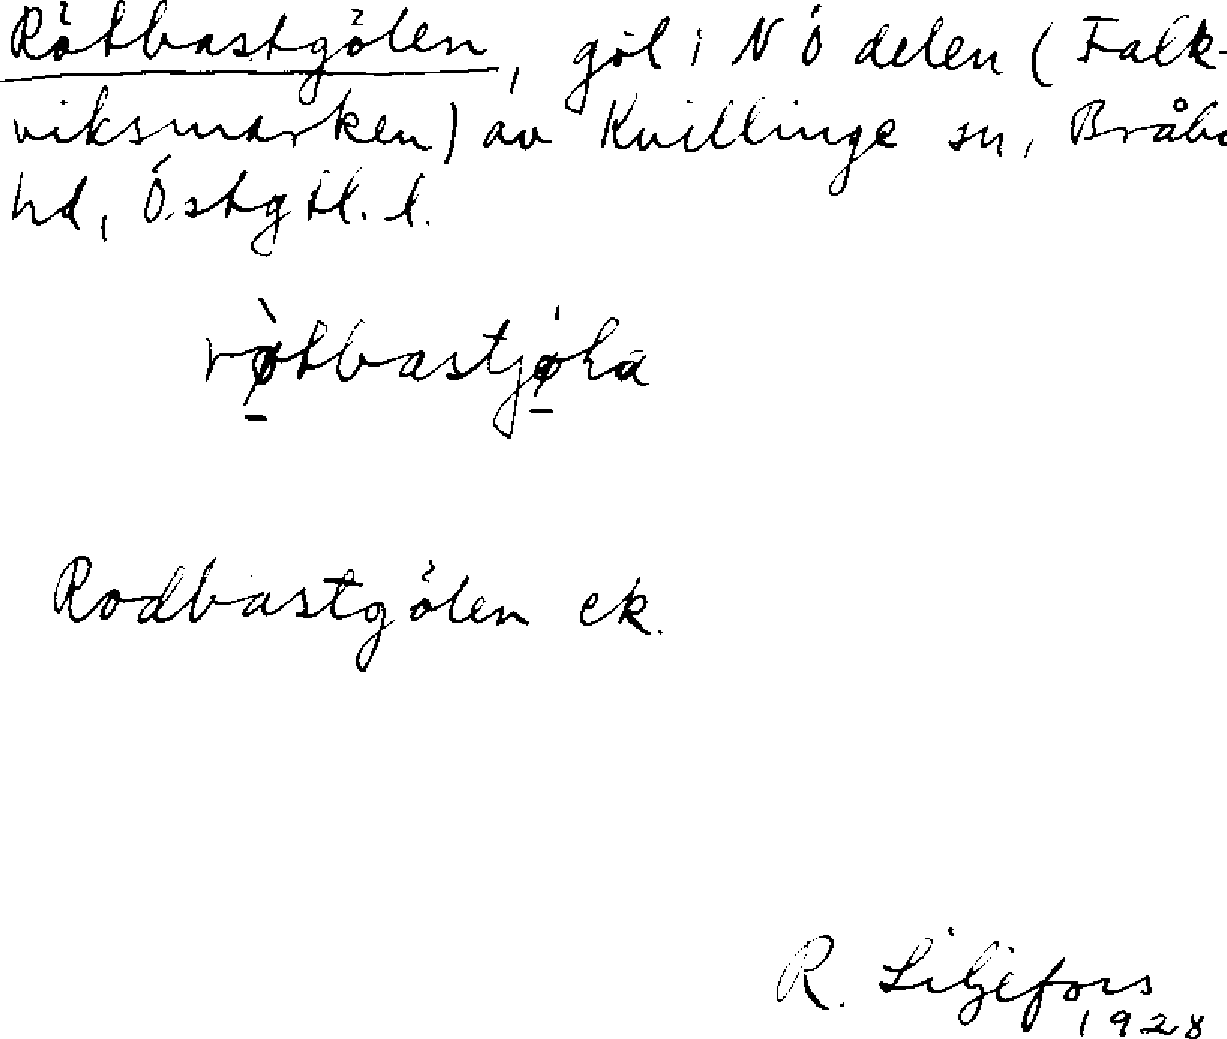 Rötbastgölen, göl i NÖ delen (Falk-
viksmarken) av Kvillinge sn, Bråbo
hd, Östgtl. l.
rø̀tbastjǿla
Rodbastgölen ek.
R. Liljefors
1928